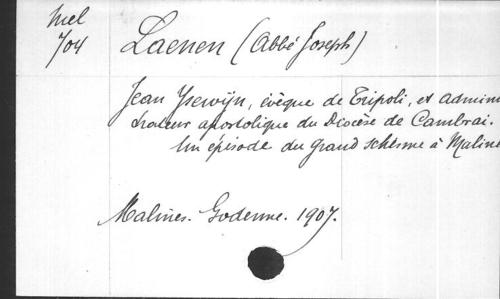 Mel
704
Laenen (Abbé Joseph)
Jean Ysewijn, évêque de Tripoli, et admini
trateur apostolique du Diocèse de Cambrai.
Un épisode du grand schisme à Maline
Malines. Godenne. 1907.